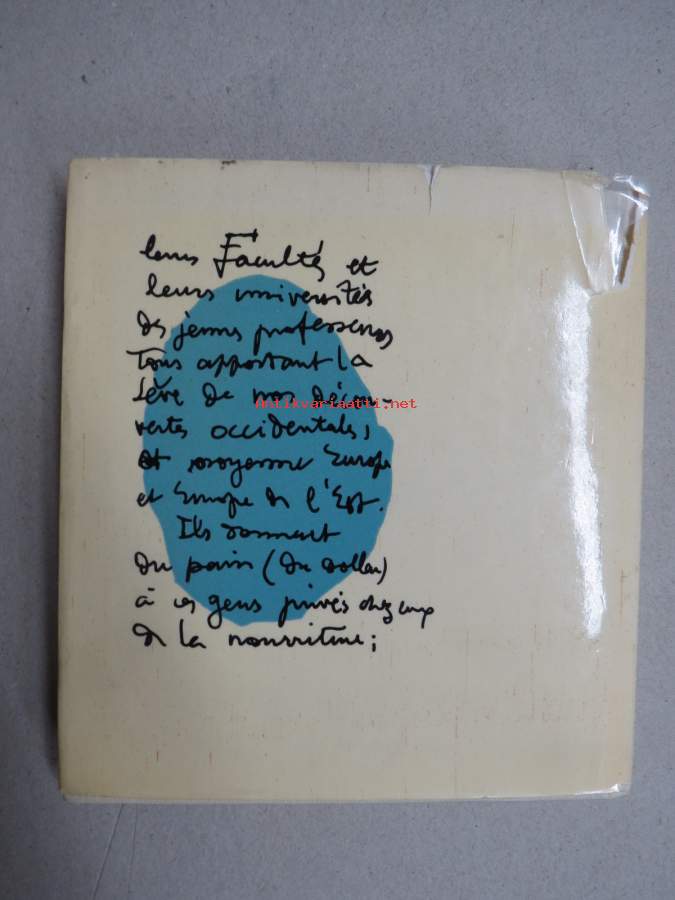 leurs Facultés et
leurs universités
des jeunes professeurs
Tous apportant la
sève de nos décou-
vertes occidentales,
et moyenne Europe
et Europe de l'Est.
Ils donnent
du pain (du dollar)
à ces gens privés chez eux
de la nourriture;
Antikvariaatti.net